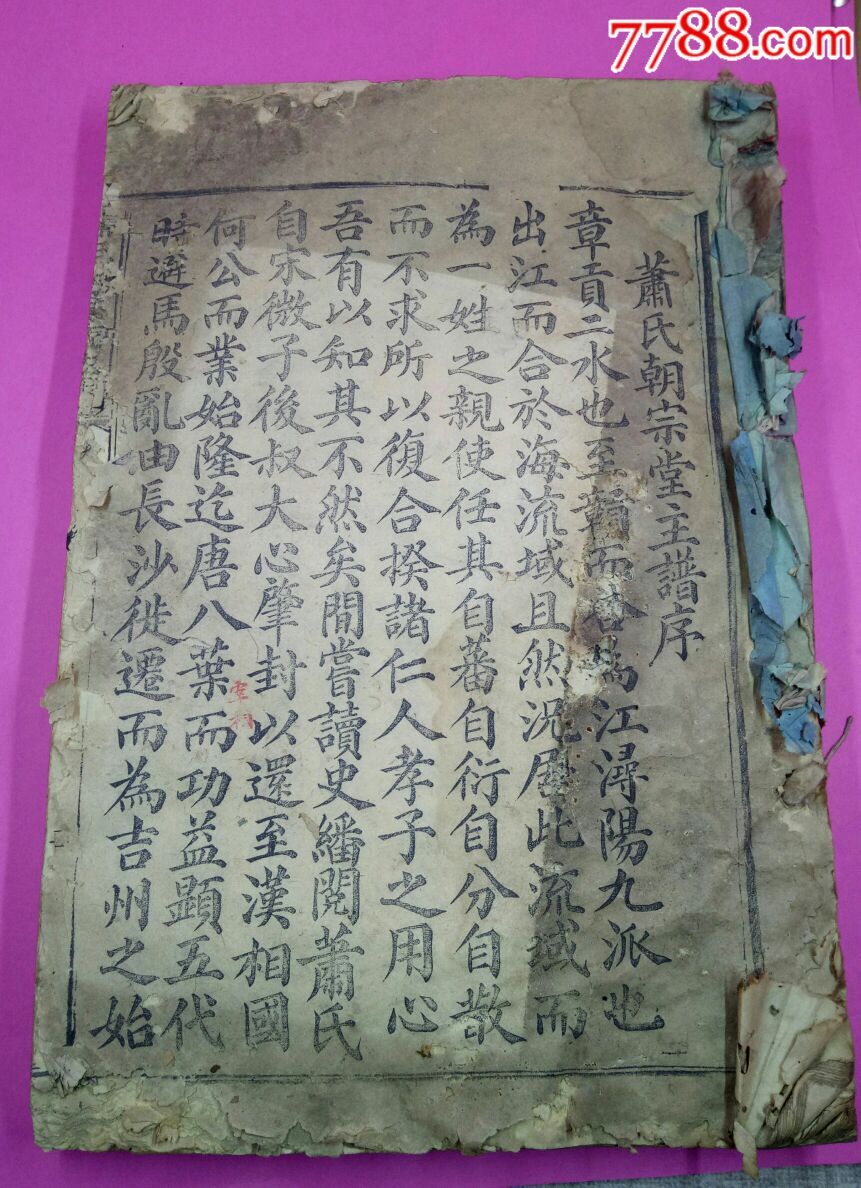 7788.com
蕭氏朝宗堂主譜序
章貢二水也至贛而合為江潯陽九派也
出江而合於海流域且然況居此流域而
為一姓之親使任其自蕃自衍自分自散
而不求所以復合揆諸仁人孝子之用心
吾有以知其不然矣間嘗讀史繙閱蕭氏
自宋微子後叔大心肇封以還至漢相國
何公而業始隆迄唐八葉而功益顯五代
時避馬殷亂由長沙徙遷而為吉州之始